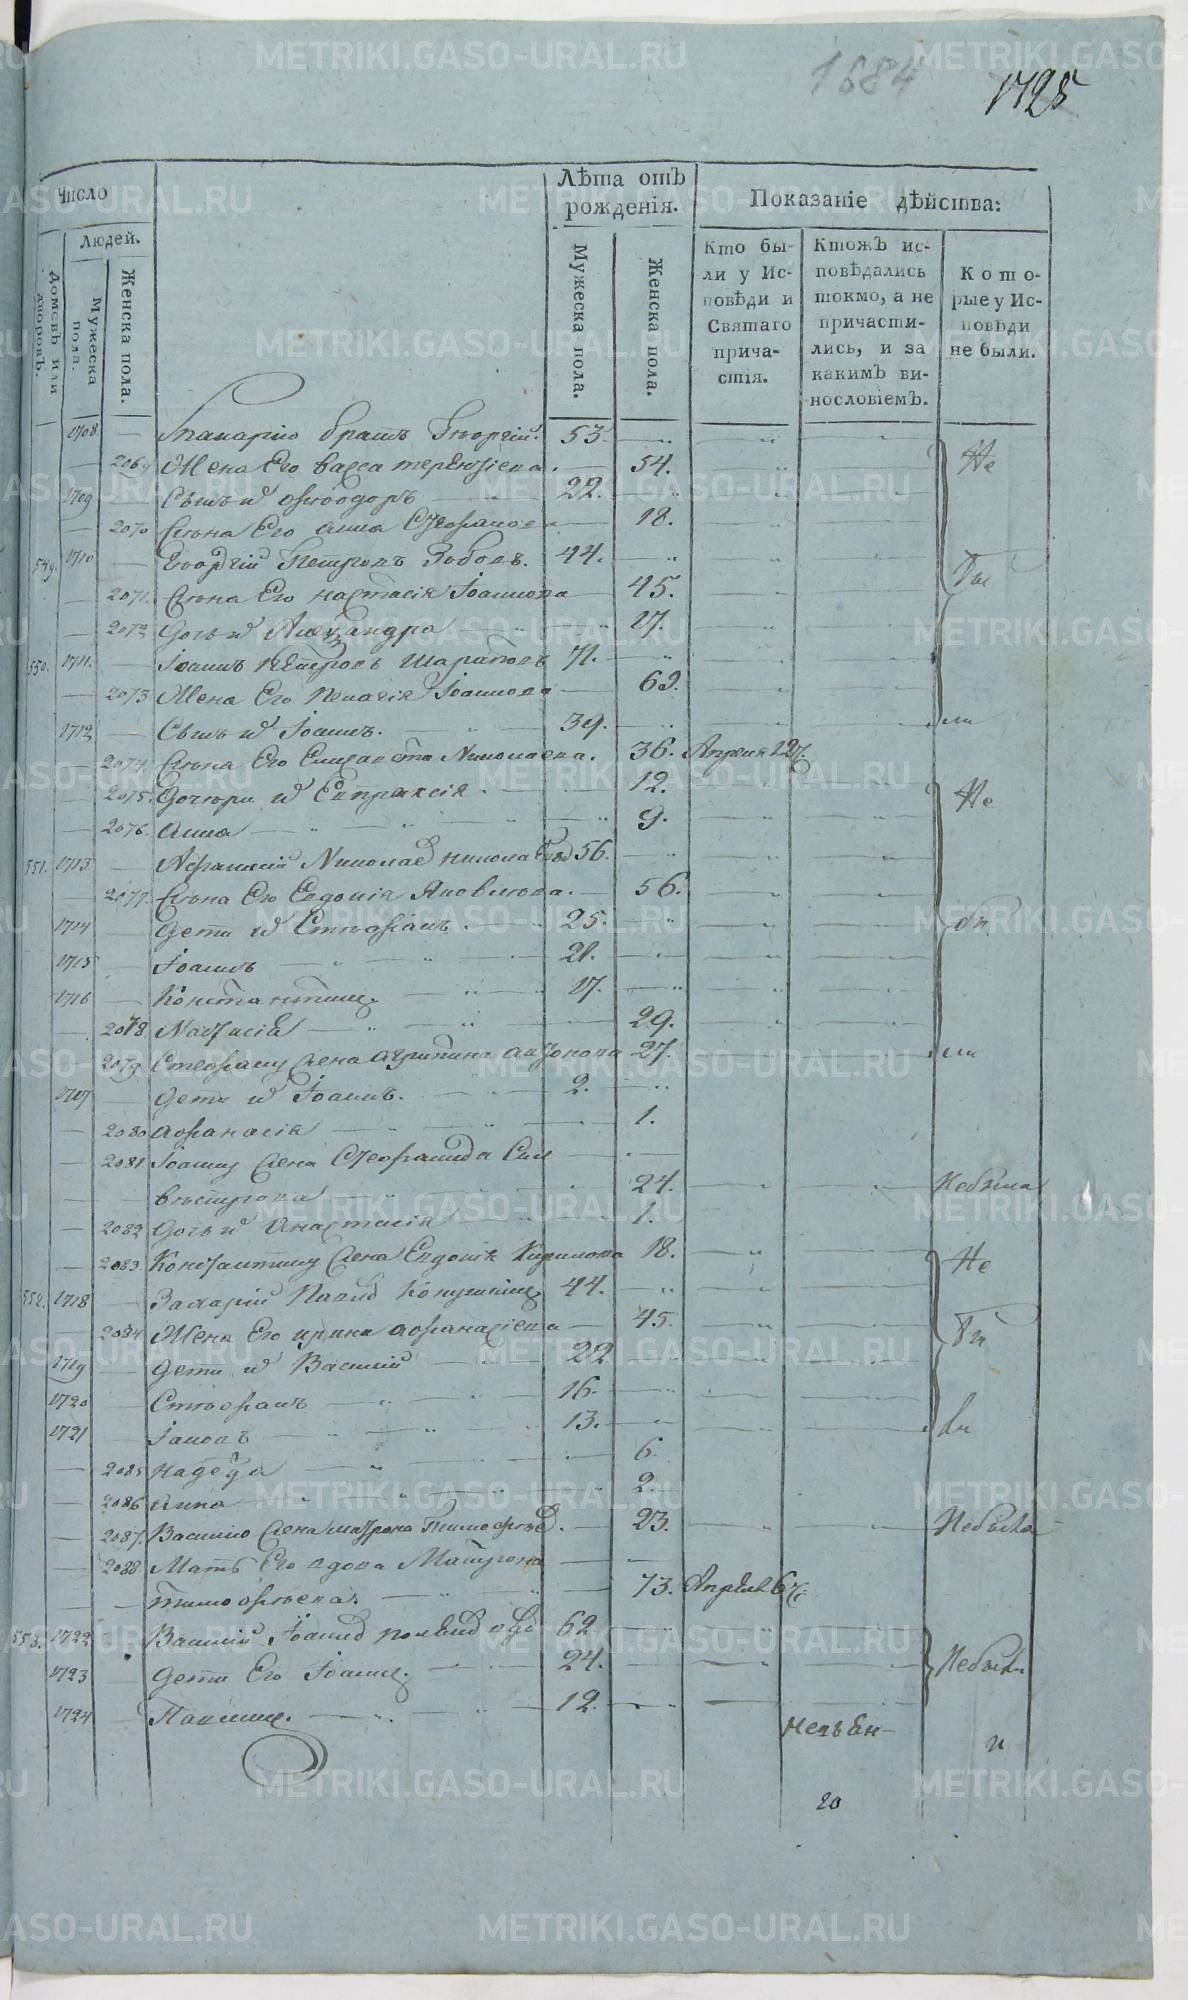 1684
1725
Число
Лѣта отъ рожденія.
Показаніе дѣйства:
Людей.
Домовъ или дворовъ.
Мужеска пола.
Женска пола.
Мужеска пола.
Женска пола.
Кто были у Исповѣди и Святаго причастія.
Ктожъ исповѣдались токмо, а не причастились, и за какимъ винословіемъ.
Которые у Исповѣди не были.
1708. братъ Георгій. 53.
2069 Жена Его Васса 54. Не
1709 Сынъ и Ѳеодоръ 22.
2070 Жена Его Анна Стефанова 18.
549. 1710 Георгій Петровъ Зобовъ. 44. бы
2071. Жена Его Настасія Іоаннова 45.
2072 Дочь и Александра 17.
550. 1711. Іоаннъ Петровъ 71.
2073 Жена Его Пелагія Іоаннова 69.
1712 Сынъ и Іоаннъ. 39. ли
2074 Жена Его Елисавета Николаева. 36. Апреля 22
2075. Дочери и Евпраксія 12. Не
2076. Анна 9.
551. 1713 56.
2077. Жена Его Евдокія Яковлева. 56.
1714 Дети и Стефанъ. 25. бы
1715 Іоаннъ 21.
1716 Константинъ. 17.
2078 29.
2079 Стефану жена Агрипина 27. ли
1717 Дети и Іоаннъ. 2.
2080 Афанасія 1.
2081 Іоанну жена Стефанида Сил
вестрова 24. Небыла
2082 Дочь и Анастасія 1.
2083. Константину жена Евдокія Кирилова 18. Не
552. 1718 Захарій 44.
2084 Жена Его Ирина Афанасіева 45. бы
1719 Дети и Василій 22
1720 Стефанъ 16.
1721 Іаковъ 13. ли
2085 Надежда 6.
2086 Анна 2.
2087. Василію жена Матрона 23. Небыла
2088 Мать Его вдова Матрона
Тимофеева. 73. Апреля 6
553. 1722 Василій 62
1723 Дети Его Іоаннъ. 24. Небыли
1724 Павелъ. 12.
20
METRIKI.GASO-URAL.RU